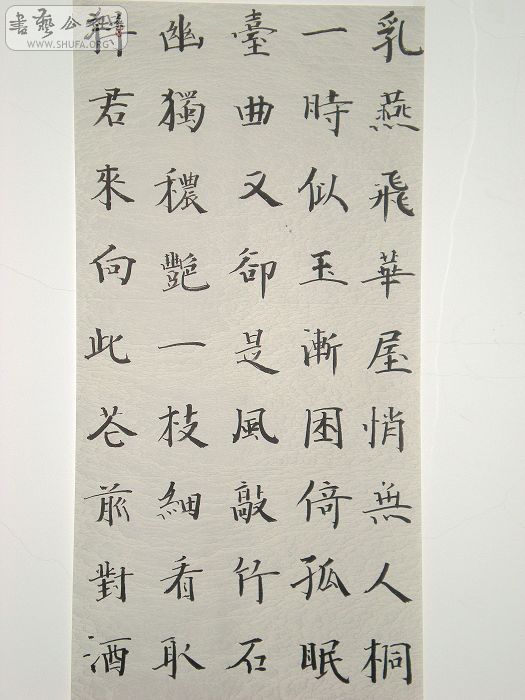 乳燕飛華屋悄無人桐
一時似玉漸困倚孤眠
臺曲又卻是風敲竹石
幽獨穠艷一枝細看取
君來向此花前對酒
書藝公社
WWW.SHUFA.ORG